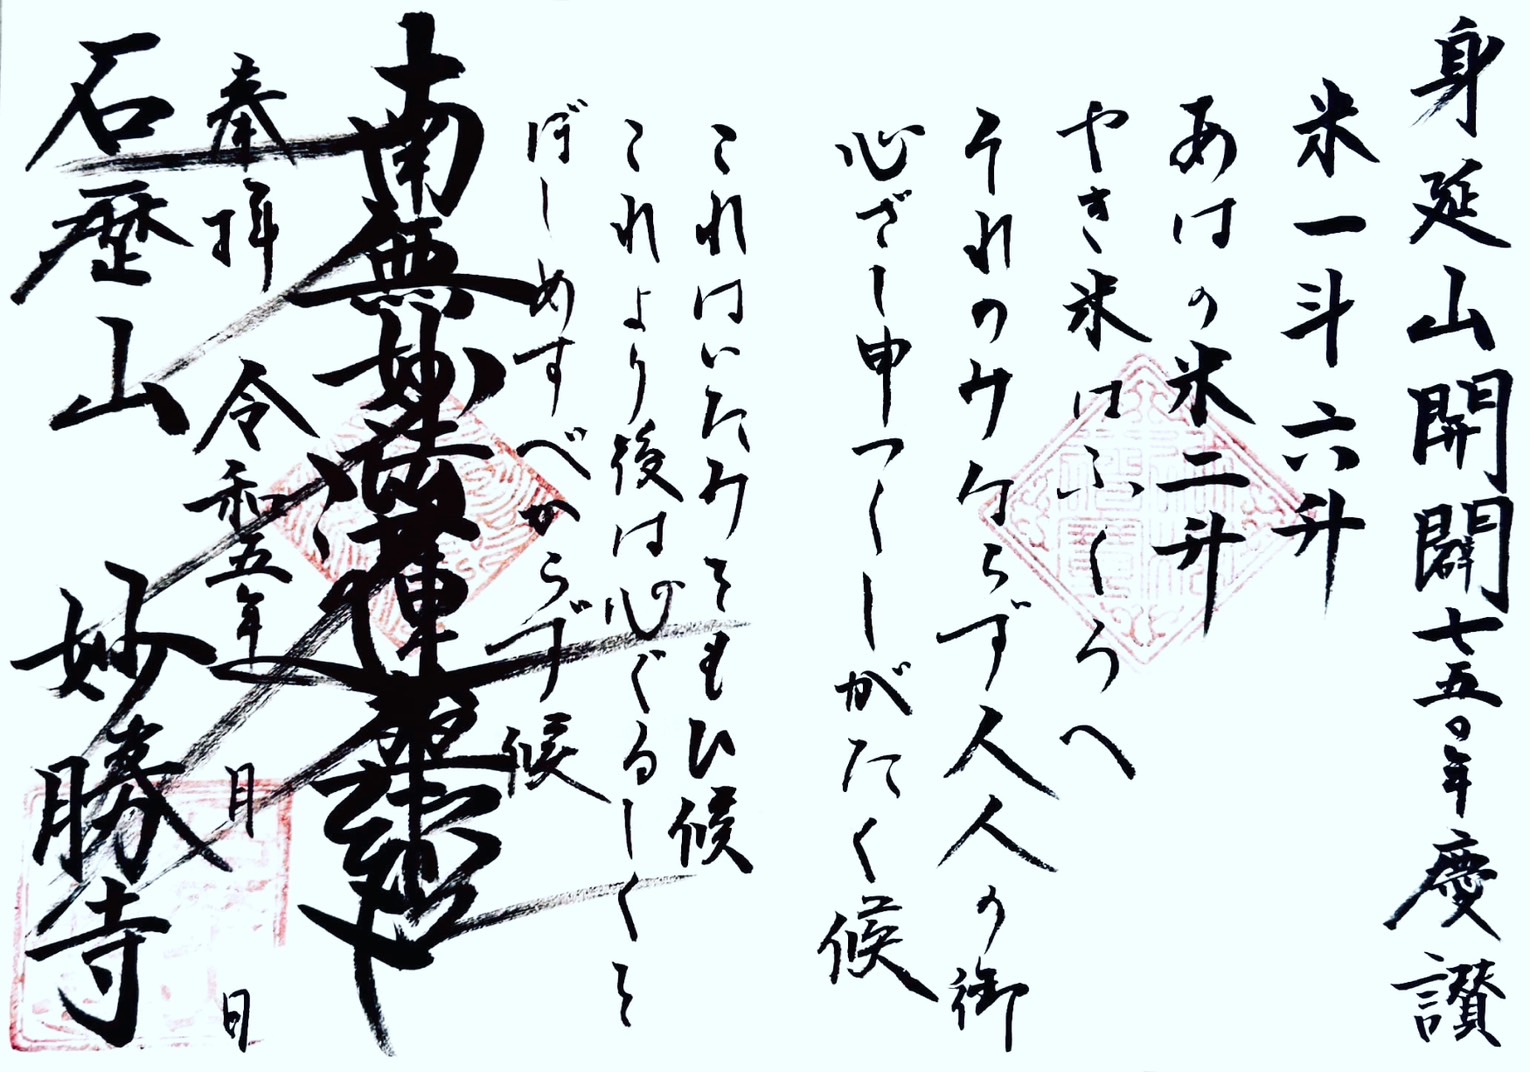 身延山開闢七五〇年慶讃
米一斗六升
あはの米二升
やき米はふくろへ
それのみならず人人の御
心ざし申つくしがたく候
これはいたみもひ候
これより後は心ぐるしく
ぼしめすべからず候
南無妙法蓮華経
奉拝 令和五年 月 日
石歴山 妙勝寺